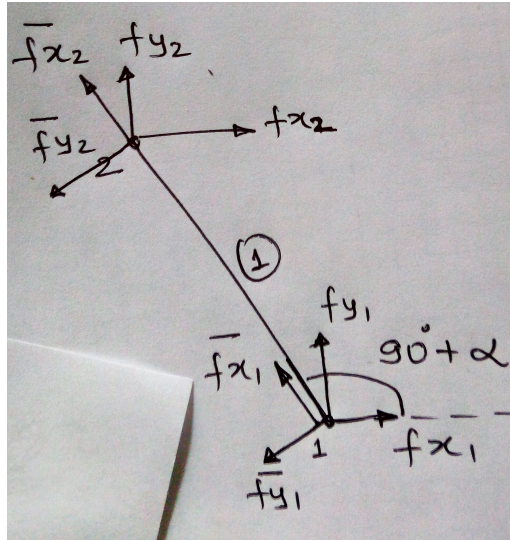 f̅x₂ fy₂
f̅y₂ fx₂
2
①
fy₁
f̅x₁ 90° + α
1 fx₁
f̅y₁